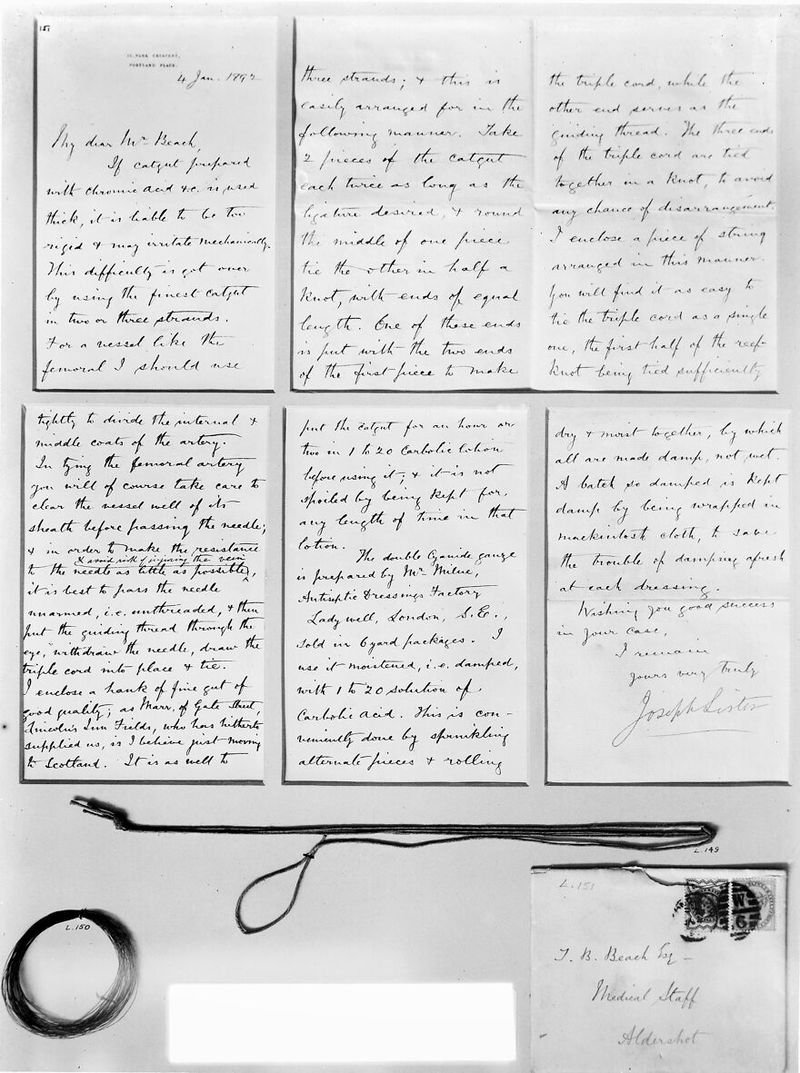 151
12, PARK CRESCENT,
PORTLAND PLACE.
4 Jan. 1892
My dear Mr Beach,
If catgut prepared
with chromic acid &c. is used
thick, it is liable to be too
riged & may irritate mechanically.
This difficulty is got over
by using the finest catgut
in two or three strands.
For a vessel like the
femoral I should use
three strands; & this is
easily arranged for in the
following manner. Take
2 pieces of the catgut
each twice as long as the
ligature desired, & round
the middle of one piece
tie the other in half a
knot, with ends of equal
length. One of these ends
is put with the two ends
of the first piece to make
the triple cord, while the
other end serves as the
guiding thread. The three ends
of the triple cord are tied
together in a knot, to avoid
any chance of disarrangement.
I enclose a piece of string
arranged in this manner.
You will find it as easy to
tie the triple cord as a single
one, the first half of the reef-
knot being tied sufficiently
tightly to divide the internal &
middle coats of the artery.
In tying the femoral artery
you will of course take care to
clear the vessel well of its
sheath before passing the needle;
& in order to make the resistance
& avoid risk of injuring the vein
to the needle as little as possible,
it is best to pass the needle
unarmed, i.e. unthreaded, & then
put the guiding thread through the
eye, withdraw the needle, draw the
triple cord into place & tie.
I enclose a hank of fine gut of
good quality; as Marr, of Gate Street,
Lincoln's Inn Fields, who has hitherto
supplied us, is I believe just moving
to Scotland. It is as well to
put the catgut for an hour or
two in 1 to 20 Carbolic lotion
before using it; & it is not
spoiled by being kept for
any length of time in that
lotion.
The double Cyanide gauze
is prepared by Mr Milne,
Antiseptic Dressings Factory
Ladywell, London, S.E.,
sold in 6 yard packages. I
use it moistened, i.e. damped,
with 1 to 20 solution of
Carbolic Acid. This is con-
veniently done by sprinkling
alternate pieces & rolling
dry & moist together, by which
all are made damp, not wet.
A batch so damped is kept
damp by being wrapped in
mackintosh cloth, to save
the trouble of damping afresh
at each dressing.
Wishing you good success
in your case,
I remain
yours very truly
Joseph Lister
L.149
L.150
L.151
T. B. Beach Esq -
Medical Staff
Aldershot
W
6